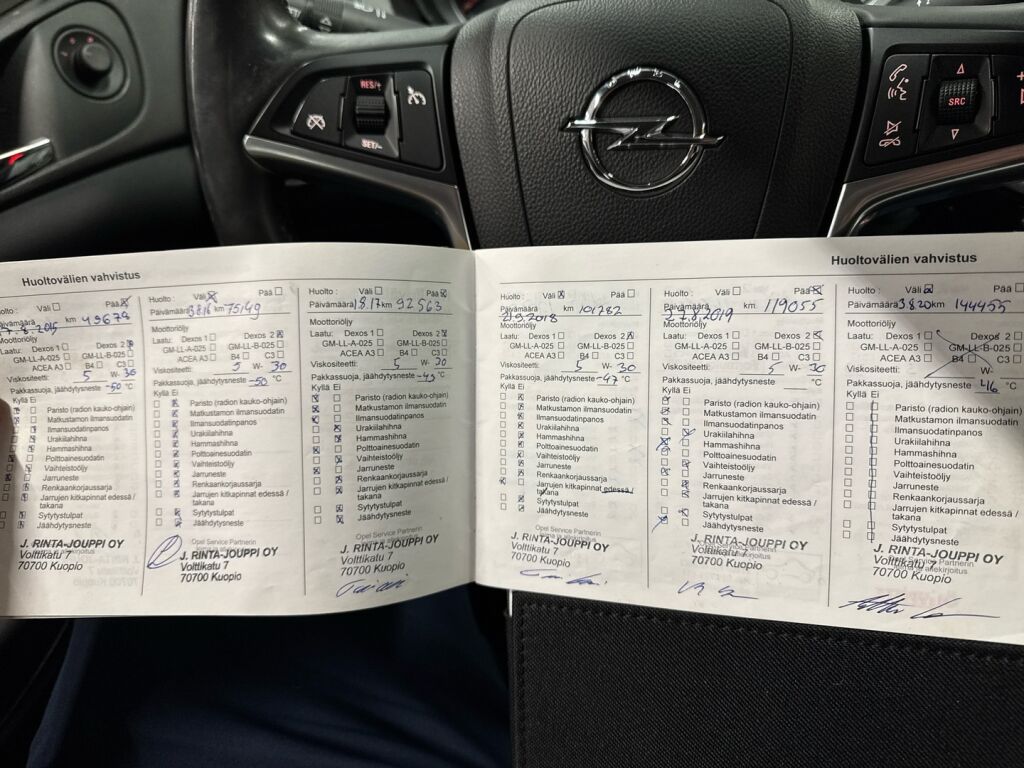 RES/+
SET/-
SRC
Huoltovälien vahvistus
Huolto: Väli Pää
Päivämäärä 7.8.2015 km 49679
Moottoriöljy
Laatu: Dexos 1 Dexos 2
GM-LL-A-025 GM-LL-B-025
ACEA A3 B4 C3
Viskositeetti: 5 W- 30
Pakkassuoja, jäähdytysneste -50 °C
Kyllä Ei
Paristo (radion kauko-ohjain)
Matkustamon ilmansuodatin
Ilmansuodatinpanos
Urakiilahihna
Hammashihna
Polttoainesuodatin
Vaihteistoöljy
Jarruneste
Renkaankorjaussarja
Jarrujen kitkapinnat edessä /
takana
Sytytystulpat
Jäähdytysneste
J. RINTA-JOUPPI OY
Volttikatu 7
70700 Kuopio
Huolto: Väli Pää
Päivämäärä 3.8.16 km 75149
Moottoriöljy
Laatu: Dexos 1 Dexos 2
GM-LL-A-025 GM-LL-B-025
ACEA A3 B4 C3
Viskositeetti: 5 W- 30
Pakkassuoja, jäähdytysneste -50 °C
Kyllä Ei
Paristo (radion kauko-ohjain)
Matkustamon ilmansuodatin
Ilmansuodatinpanos
Urakiilahihna
Hammashihna
Polttoainesuodatin
Vaihteistoöljy
Jarruneste
Renkaankorjaussarja
Jarrujen kitkapinnat edessä /
takana
Sytytystulpat
Jäähdytysneste
J. RINTA-JOUPPI OY
Volttikatu 7
70700 Kuopio
Huolto: Väli Pää
Päivämäärä 1.8.17 km 92563
Moottoriöljy
Laatu: Dexos 1 Dexos 2
GM-LL-A-025 GM-LL-B-025
ACEA A3 B4 C3
Viskositeetti: 5 W- 30
Pakkassuoja, jäähdytysneste -45 °C
Kyllä Ei
Paristo (radion kauko-ohjain)
Matkustamon ilmansuodatin
Ilmansuodatinpanos
Urakiilahihna
Hammashihna
Polttoainesuodatin
Vaihteistoöljy
Jarruneste
Renkaankorjaussarja
Jarrujen kitkapinnat edessä /
takana
Sytytystulpat
Jäähdytysneste
Opel Service Partnerin
J. RINTA-JOUPPI OY
Volttikatu 7
70700 Kuopio
Huoltovälien vahvistus
Huolto: Väli Pää
Päivämäärä 21.9.2018 km 101782
Moottoriöljy
Laatu: Dexos 1 Dexos 2
GM-LL-A-025 GM-LL-B-025
ACEA A3 B4 C3
Viskositeetti: 5 W- 30
Pakkassuoja, jäähdytysneste -47 °C
Kyllä Ei
Paristo (radion kauko-ohjain)
Matkustamon ilmansuodatin
Ilmansuodatinpanos
Urakiilahihna
Hammashihna
Polttoainesuodatin
Vaihteistoöljy
Jarruneste
Renkaankorjaussarja
Jarrujen kitkapinnat edessä /
takana
Sytytystulpat
Jäähdytysneste
Opel Service Partnerin
J. RINTA-JOUPPI OY
Volttikatu 7
70700 Kuopio
Huolto: Väli Pää
Päivämäärä km 119055
Moottoriöljy
Laatu: Dexos 1 Dexos 2
GM-LL-A-025 GM-LL-B-025
ACEA A3 B4 C3
Viskositeetti: 5 W- 30
Pakkassuoja, jäähdytysneste °C
Kyllä Ei
Paristo (radion kauko-ohjain)
Matkustamon ilmansuodatin
Ilmansuodatinpanos
Urakiilahihna
Hammashihna
Polttoainesuodatin
Vaihteistoöljy
Jarruneste
Renkaankorjaussarja
Jarrujen kitkapinnat edessä /
takana
Sytytystulpat
Jäähdytysneste
J. RINTA-JOUPPI OY
Volttikatu 7
70700 Kuopio
Huolto: Väli Pää
Päivämäärä 3.8.20 km 144455
Moottoriöljy
Laatu: Dexos 1 Dexos 2
GM-LL-A-025 GM-LL-B-025
ACEA A3 B4 C3
Viskositeetti: W-
Pakkassuoja, jäähdytysneste -46 °C
Kyllä Ei
Paristo (radion kauko-ohjain)
Matkustamon ilmansuodatin
Ilmansuodatinpanos
Urakiilahihna
Hammashihna
Polttoainesuodatin
Vaihteistoöljy
Jarruneste
Renkaankorjaussarja
Jarrujen kitkapinnat edessä /
takana
Sytytystulpat
Jäähdytysneste
J. RINTA-JOUPPI OY
Volttikatu 7
70700 Kuopio